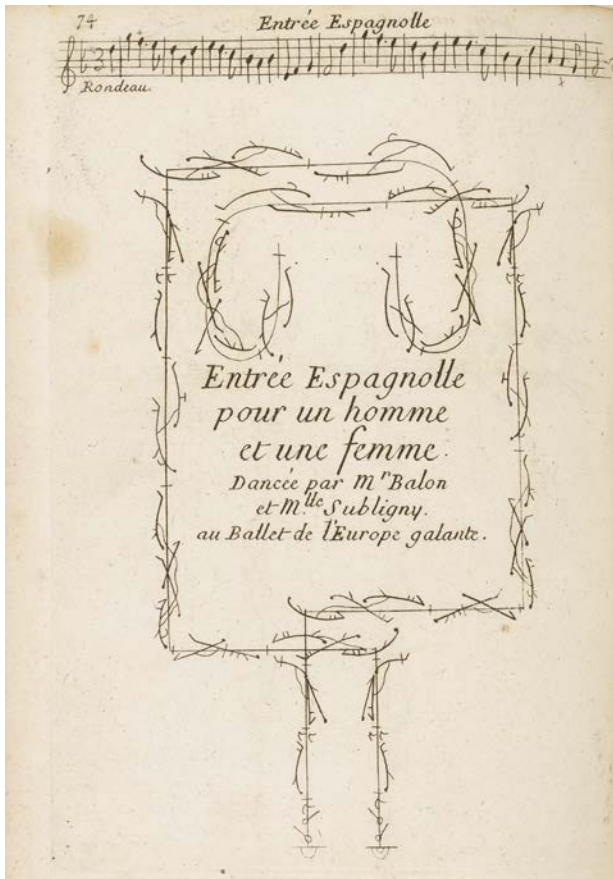 74
Entrée Espagnolle
Rondeau.
Entrée Espagnolle
pour un homme
et une femme.
Dancée par Mr Balon
et Mlle Subligny.
au Ballet de l'Europe galante.